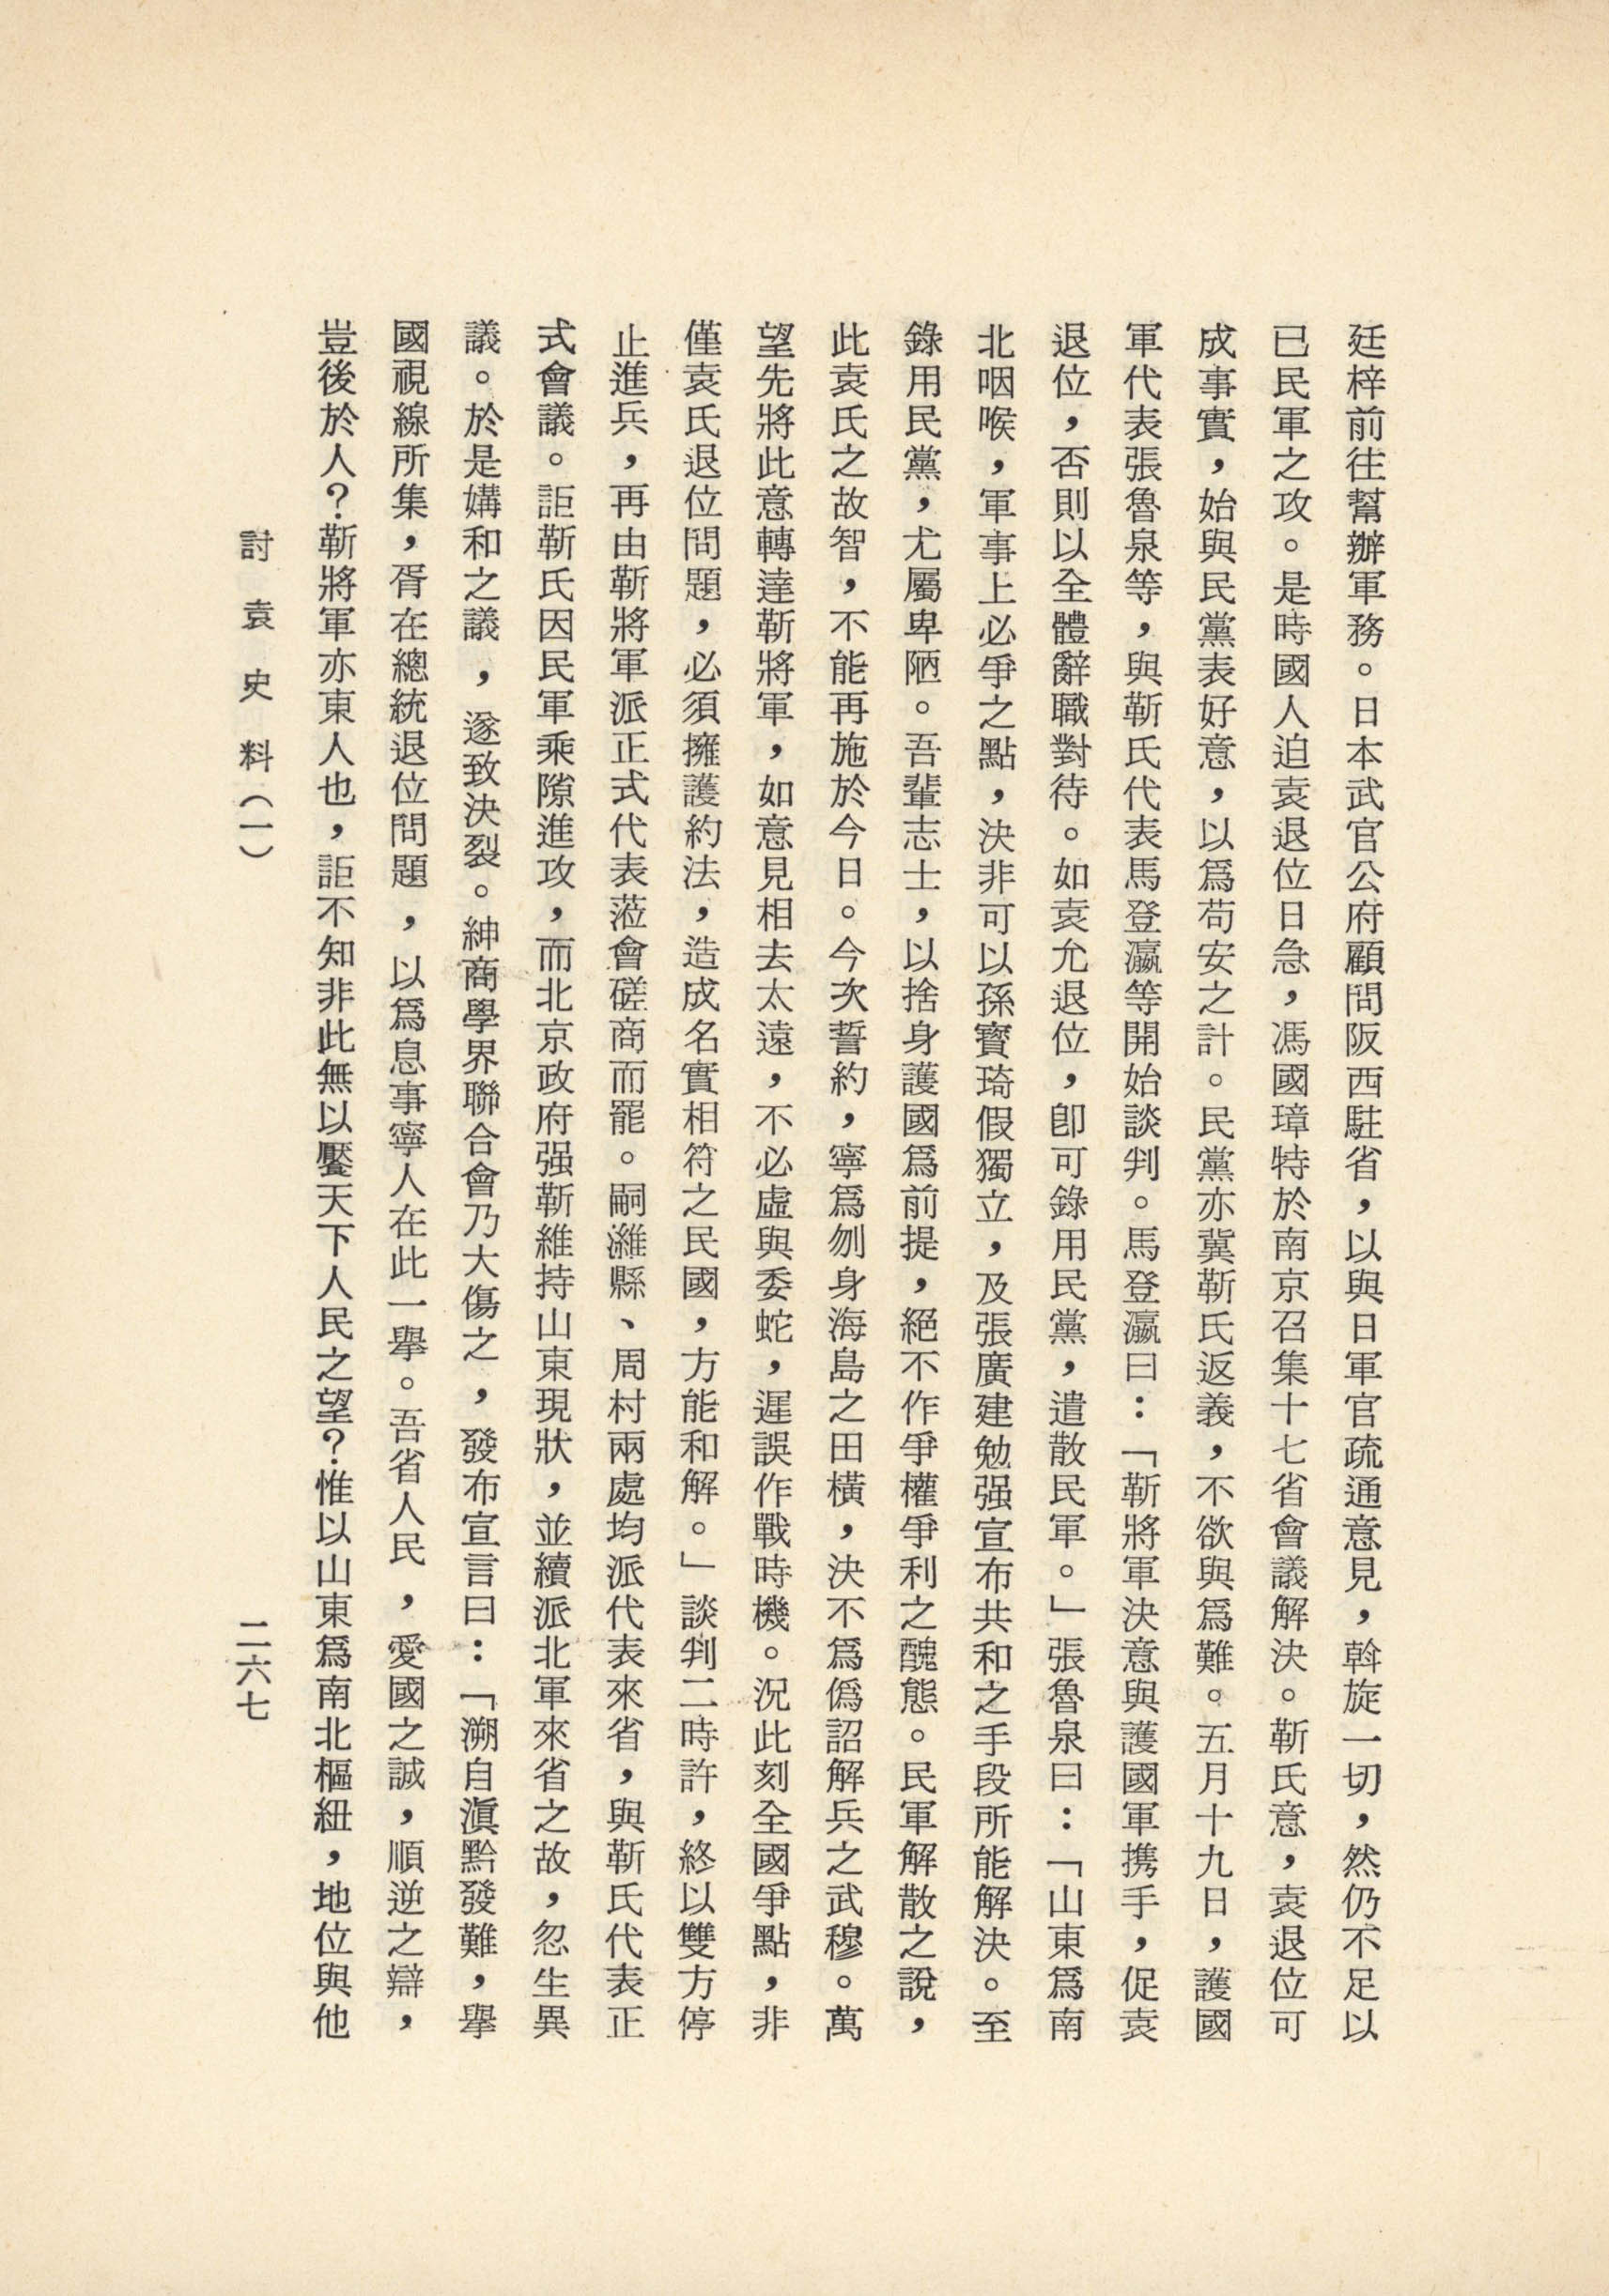 廷梓前往幫辦軍務。日本武官公府顧問阪西駐省，以與日軍官疏通意見，斡旋一切，然仍不足以
已民軍之攻。是時國人迫袁退位日急，馮國璋特於南京召集十七省會議解決。靳氏意，袁退位可
成事實，始與民黨表好意，以爲苟安之計。民黨亦冀靳氏返義，不欲與爲難。五月十九日，護國
軍代表張魯泉等，與靳氏代表馬登瀛等開始談判。馬登瀛曰：「靳將軍決意與護國軍携手，促袁
退位，否則以全體辭職對待。如袁允退位，卽可錄用民黨，遣散民軍。」張魯泉曰：「山東爲南
北咽喉，軍事上必爭之點，決非可以孫寶琦假獨立，及張廣建勉强宣布共和之手段所能解決。至
錄用民黨，尤屬卑陋。吾輩志士，以捨身護國爲前提，絕不作爭權爭利之醜態。民軍解散之說，
此袁氏之故智，不能再施於今日。今次誓約，寧爲刎身海島之田橫，決不爲僞詔解兵之武穆。萬
望先將此意轉達靳將軍，如意見相去太遠，不必虛與委蛇，遲誤作戰時機。況此刻全國爭點，非
僅袁氏退位問題，必須擁護約法，造成名實相符之民國，方能和解。」談判二時許，終以雙方停
止進兵，再由靳將軍派正式代表蒞會磋商而罷。嗣濰縣、周村兩處均派代表來省，與靳氏代表正
式會議。詎靳氏因民軍乘隙進攻，而北京政府强靳維持山東現狀，並續派北軍來省之故，忽生異
議。於是媾和之議，遂致決裂。紳商學界聯合會乃大傷之，發布宣言曰：「溯自滇黔發難，擧
國視線所集，胥在總統退位問題，以爲息事寧人在此一擧。吾省人民，愛國之誠，順逆之辯，
豈後於人？靳將軍亦東人也，詎不知非此無以饜天下人民之望？惟以山東爲南北樞紐，地位與他
討袁史料（一）
二六七